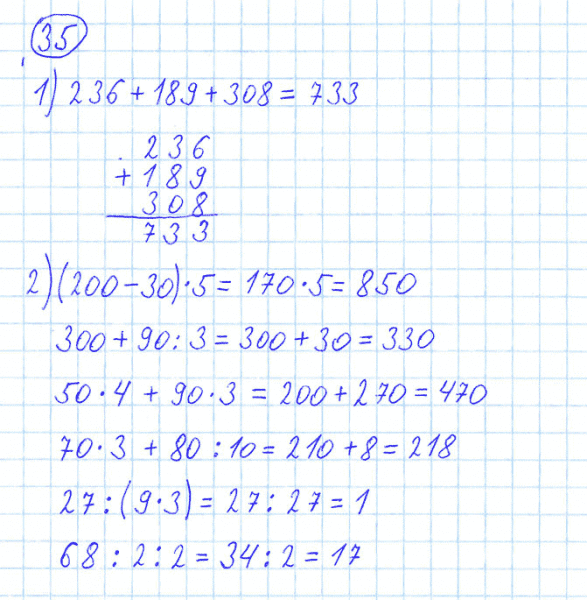 35
1) 236 + 189 + 308 = 733
236
+ 189
308
733
2) (200 - 30) · 5 = 170 · 5 = 850
300 + 90 : 3 = 300 + 30 = 330
50 · 4 + 90 · 3 = 200 + 270 = 470
70 · 3 + 80 : 10 = 210 + 8 = 218
27 : (9 · 3) = 27 : 27 = 1
68 : 2 : 2 = 34 : 2 = 17